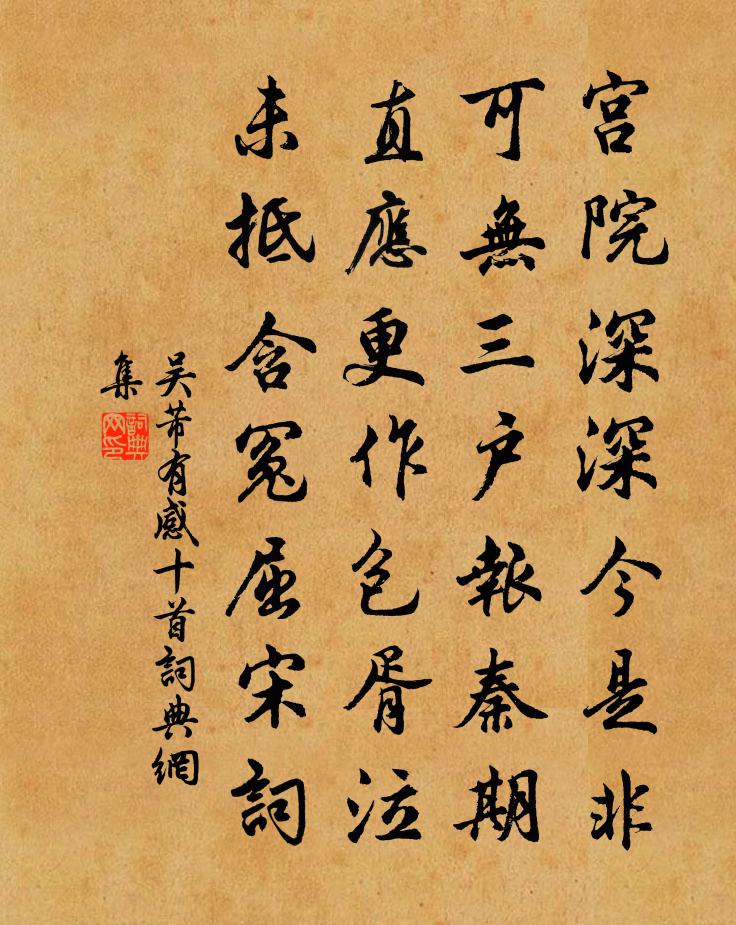 宫院深深今是非
可無三户報秦期
直應更作包胥泣
未抵含冤屈宋詞
吴芾有感十首詞典網
集
詞典網印